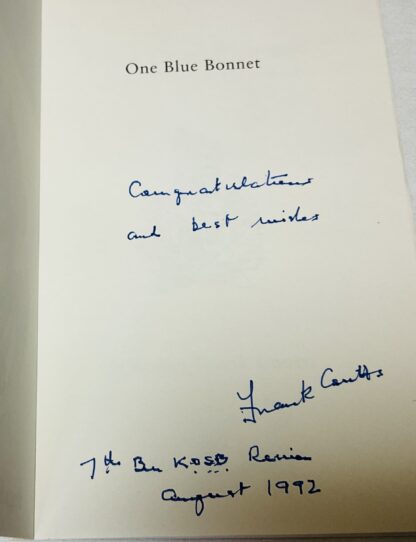 One Blue Bonnet
Congratulations
and best wishes
Frank Coutts
7th Bn K.O.S.B Reunion
August 1992